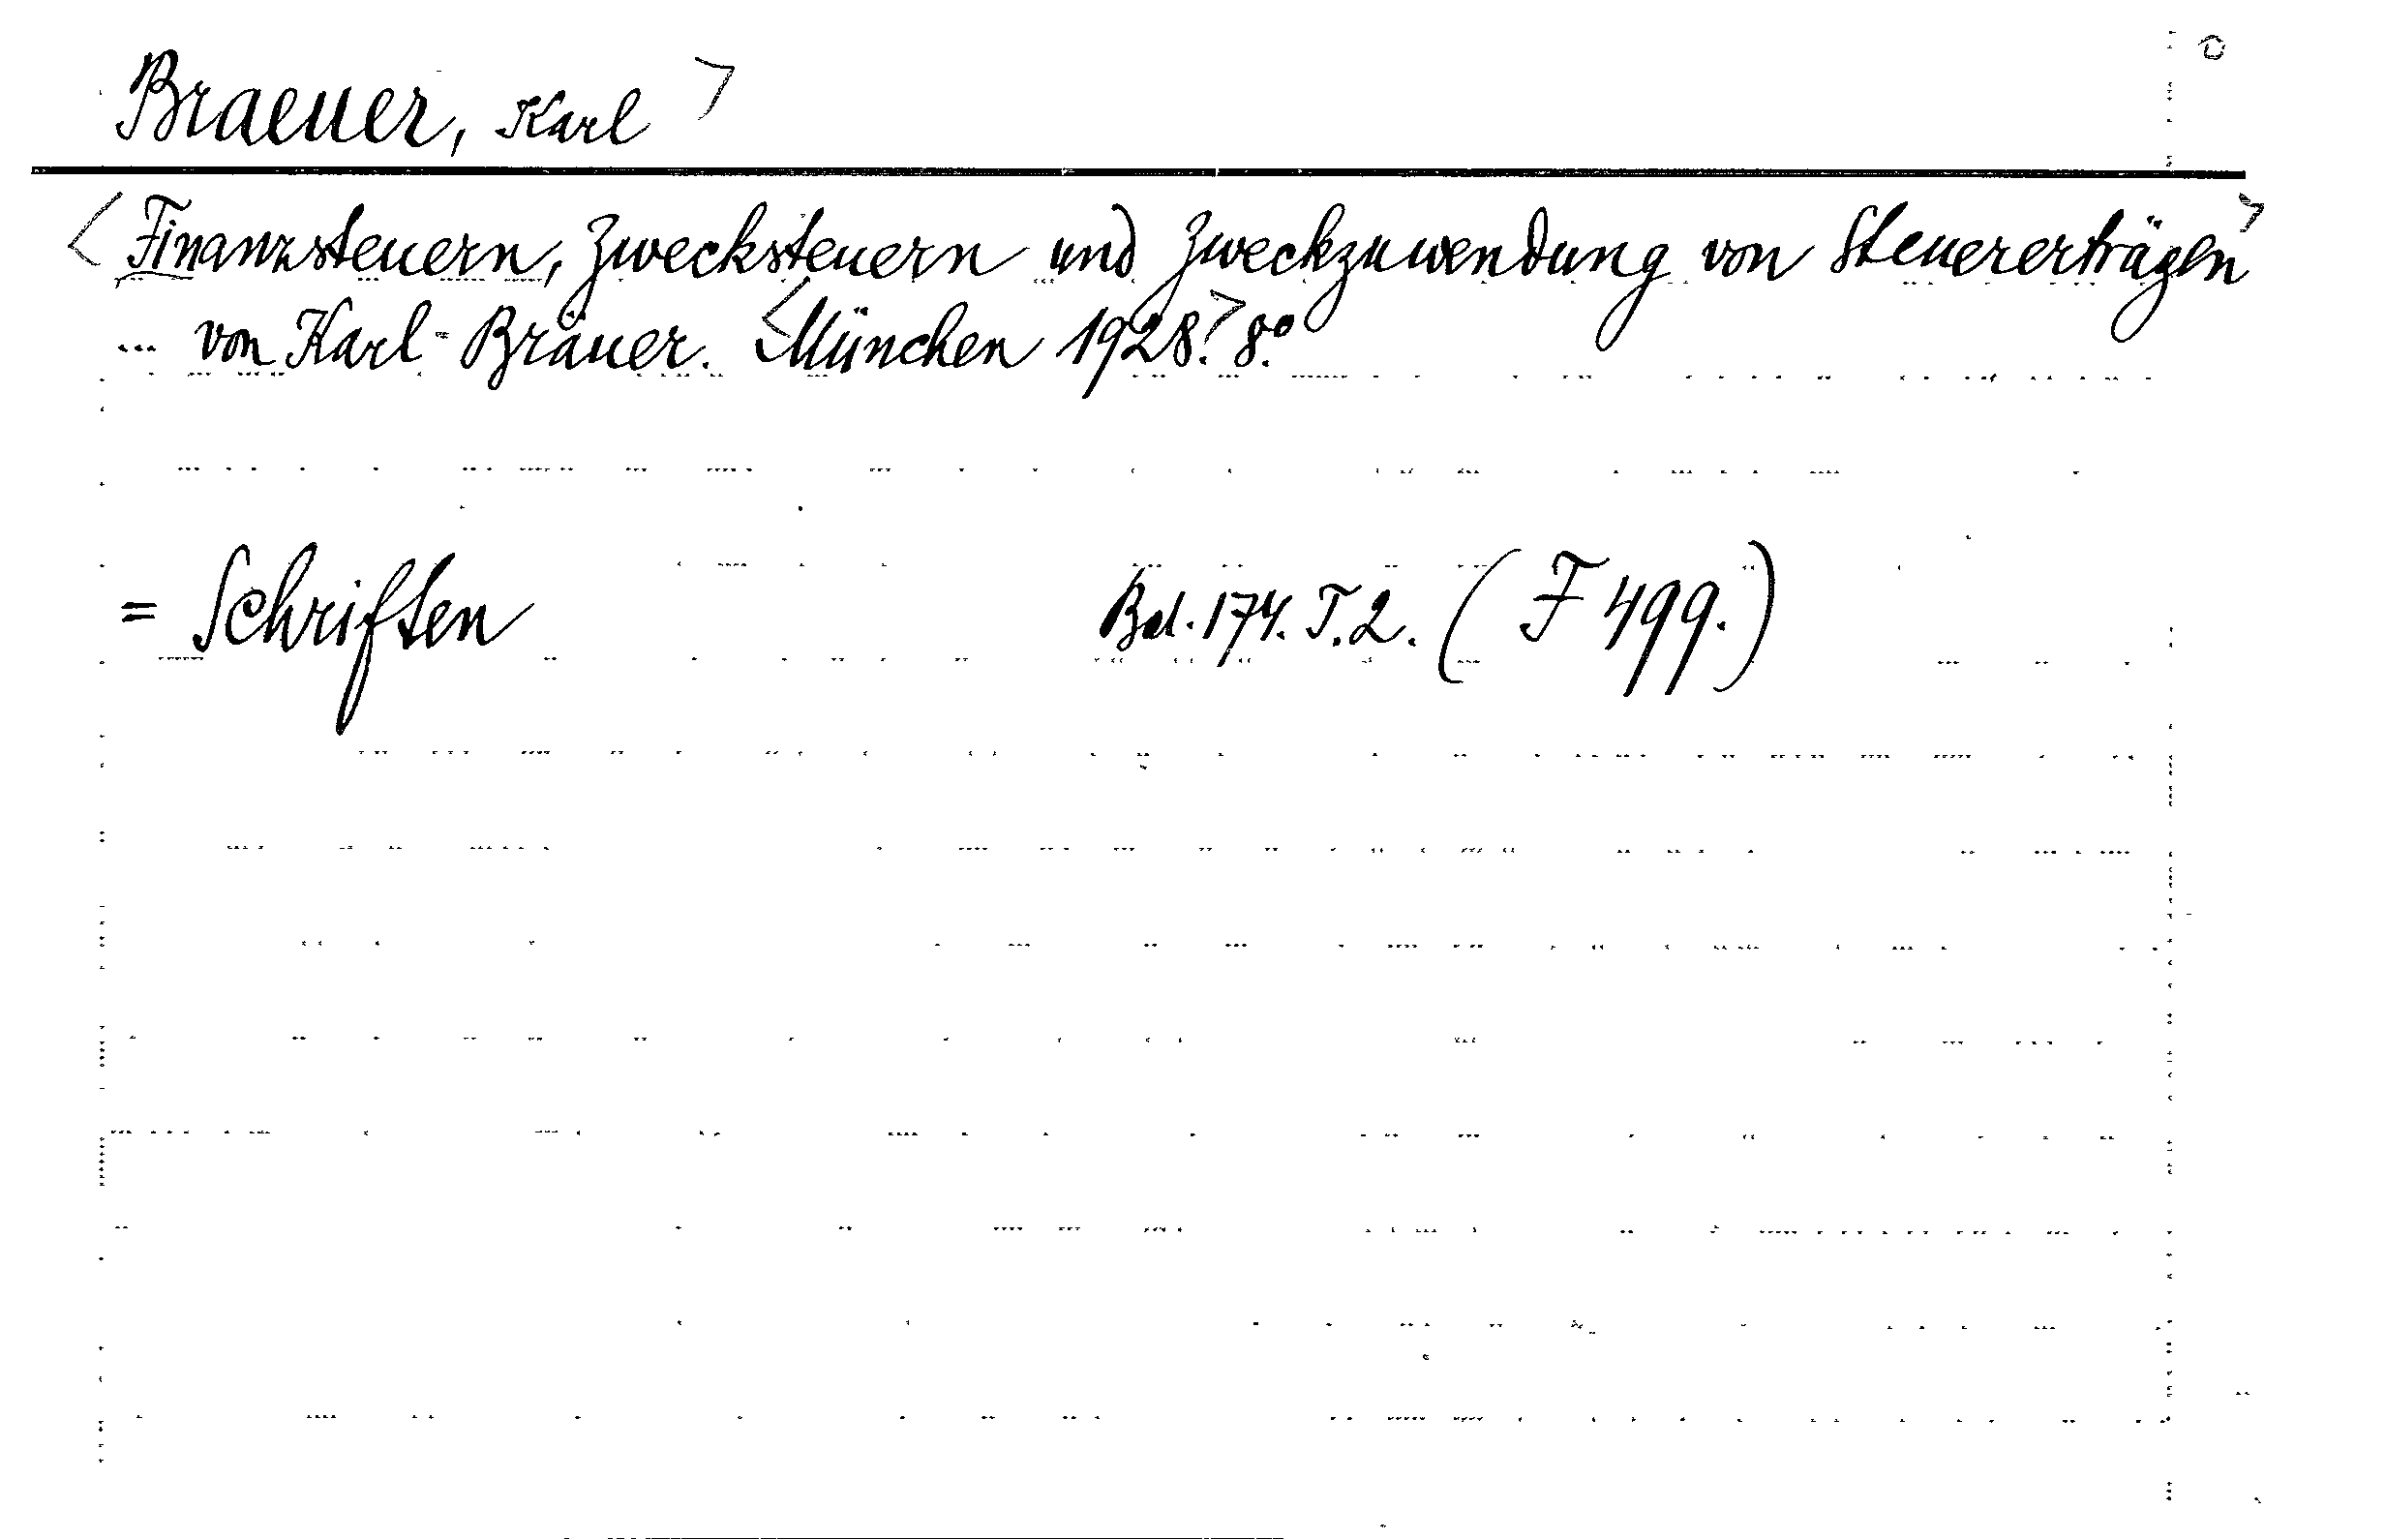 Braeuer, Karl >
< Finanzsteuern, Zwecksteuern und Zweckzuwendung von Steuererträgen >
... von Karl Bräuer. < München 1928. > 8.°
= Schriften Bd. 174. T. 2. ( F 499. )